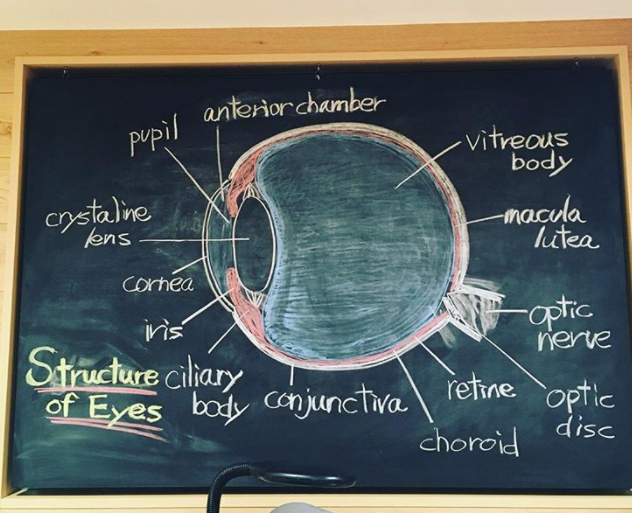 anterior chamber
pupil
vitreous
body
crystaline
lens
macula
lutea
cornea
iris
optic
nerve
Structure
of Eyes
ciliary
body
conjunctiva
retine
optic
disc
choroid